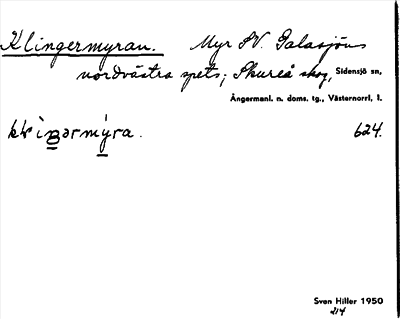 Klingermyran. Myr SV. Galasjöns
nordvästra spets; Skureå skog, Sidensjö sn,
Ångermanl. n. doms. tg., Västernorrl, l.
624.
Sven Hiller 1950
214